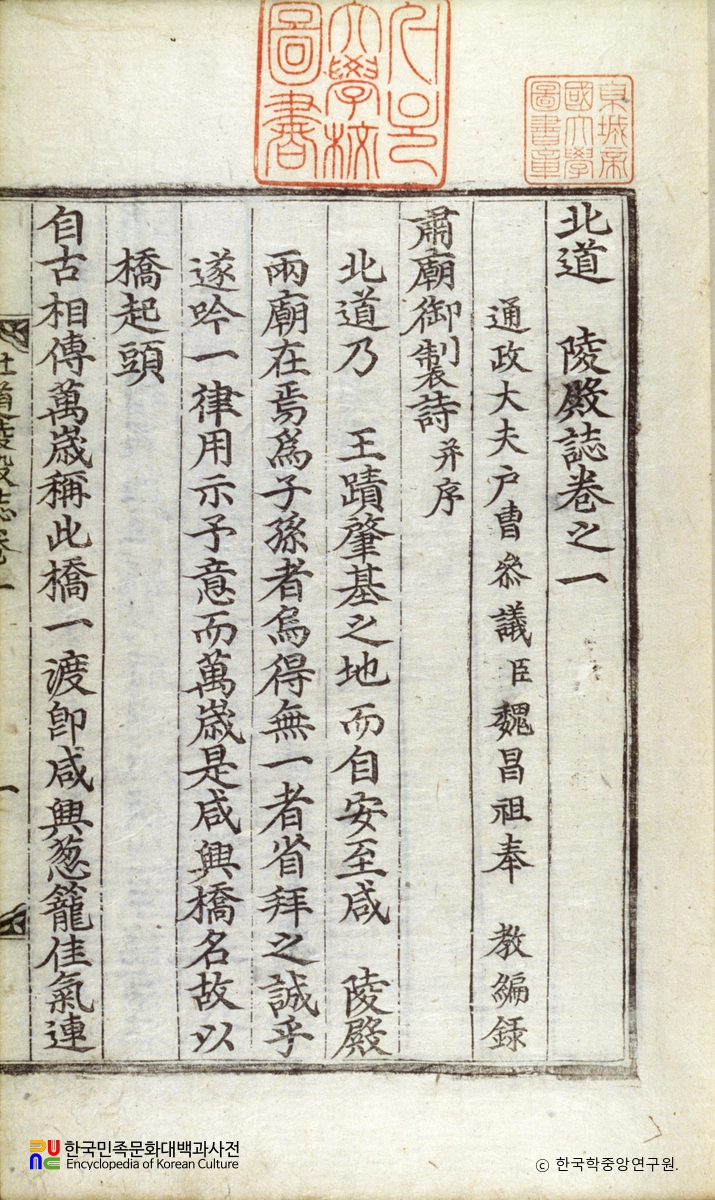 北道 陵殿誌卷之一
通政大夫戶曹參議臣魏昌祖奉 教編錄
肅廟御製詩并序
北道乃 王蹟肇基之地而自安至咸 陵殿
兩廟在焉爲子孫者烏得無一者省拜之誠乎
遂吟一律用示予意而萬歲是咸興橋名故以
橋起頭
自古相傳萬歲稱此橋一渡卽咸興葱籠佳氣連
北道陵殿誌卷一
京城帝
國大學
圖書章
大學校
圖書
한국민족문화대백과사전
Encyclopedia of Korean Culture
© 한국학중앙연구원.